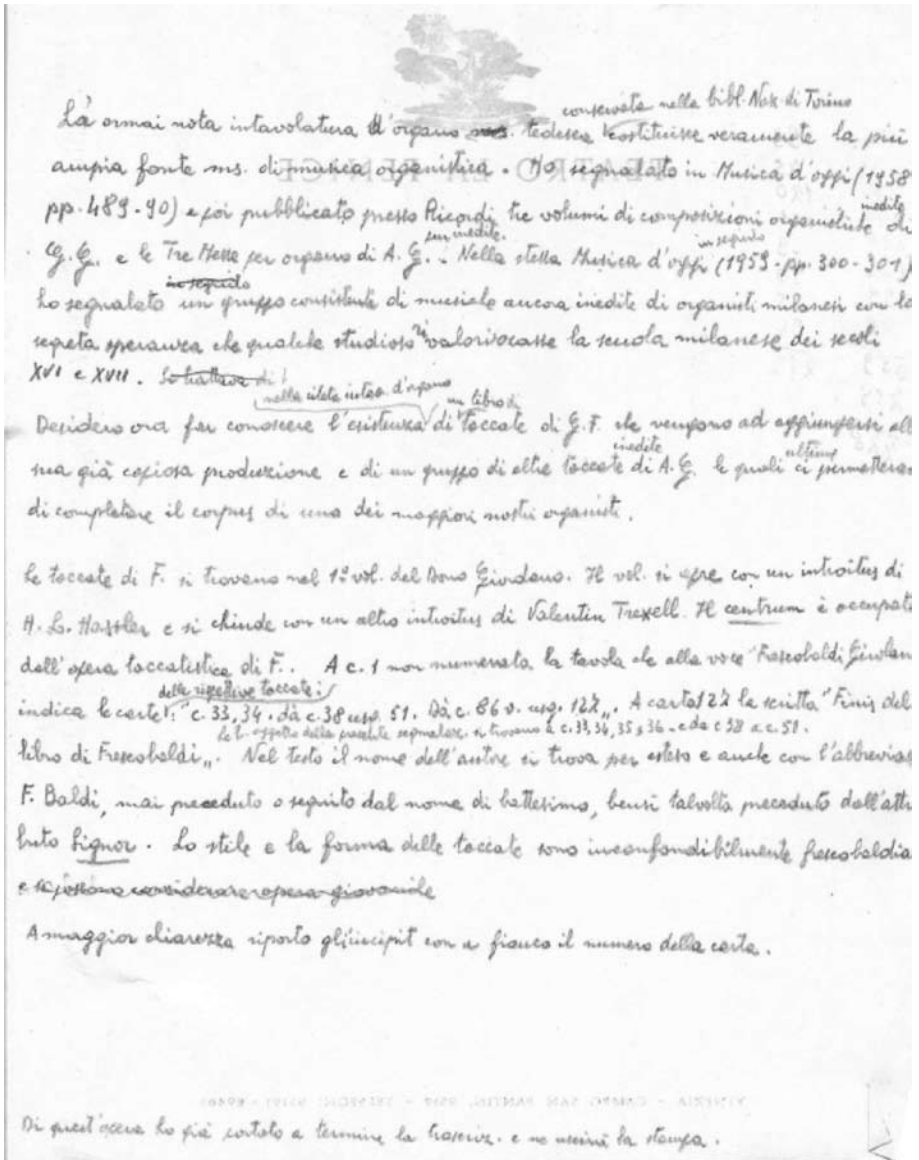 conservata nella bibl. Naz. di Torino
La ormai nota intavolatura d'organo ms. tedesca costituisce veramente la più
ampia fonte ms. di musica organistica. Ho segnalato in Musica d'oggi (1958
inedite
pp. 489-90) e poi pubblicato presso Ricordi tre volumi di composizioni organistiche di
pur inedite. in seguito
G. G. e le Tre Messe per organo di A. G. . Nella stessa Musica d'oggi (1959 - pp. 300-301)
in seguito
ho segnalato un gruppo consistente di musiche ancora inedite di organisti milanesi con la
segreta speranza che qualche studioso valorizzasse la scuola milanese dei secoli
XVI e XVII. Si trattava di
nella citata intav. d'organo un libro di
Desidero ora far conoscere l'esistenza di toccate di G. F. che vengono ad aggiungersi all
inedite ultime
sua già copiosa produzione e di un gruppo di altre toccate di A. G. le quali ci permetteran
di completare il corpus di uno dei maggiori nostri organisti.
Le toccate di F. si trovano nel 1° vol. del Dono Giordano. Il vol. si apre con un introitus di
H. L. Hassler e si chiude con un altro introitus di Valentin Trexell. Il centrum è occupato
dall'opera toccatistica di F. . A c. 1 non numerata la tavola che alla voce "Frescobaldi Girolamo
delle rispettive toccate:
indica le carte: "c. 33, 34. dà c. 38 usq. 51. Dà c. 86 v. usq. 122„. A carta 122 la scritta "Finis del
della precedente segnalaz. si trovano a c. 33, 34, 35, 36. e da c 38 a c. 51.
libro di Frescobaldi„. Nel testo il nome dell'autore si trova per esteso e anche con l'abbreviaz
F. Baldi, mai preceduto o seguito dal nome di battesimo, bensì talvolta preceduto dall'attri
buto Signor. Lo stile e la forma delle toccate sono inconfondibilmente frescobaldia
e si possono considerare opera giovanile
A maggior chiarezza riporto gli incipit con a fianco il numero della carta.
Di quest'opera ho già portato a termine la trascriz. e ne uscirà la stampa.